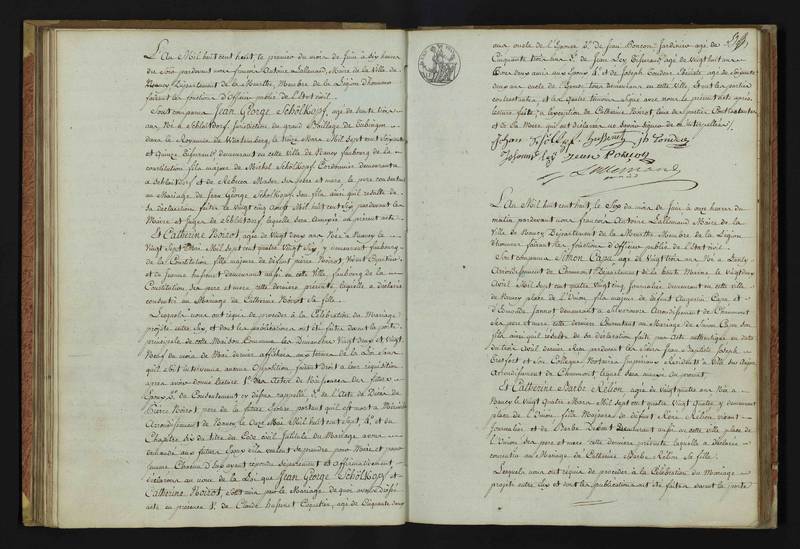 L'An Mil huit cent huit, le premier du mois de Juin à six heures
du Soir pardevant nous françois Antoine Lallemand, Maire de la Ville de
Nancy Département de la Meurthe, Membre de la Légion d'honneur
faisant les fonctions d'Officier public de l'Etat civil.
Sont comparus Jean George Schölkopf, agé de trente trois
ans Né à Schlaitdorf, Jurisdiction du grand Bailliage de Tubingen
dans le Royaume de Wurtemberg, le treize Mars Mil sept cent soixante
et Quinze, demeurant en cette Ville de Nancy faubourg de la
Constitution fils majeur de Michel Schölkopf Cordonnier demeurant
à Schlaitdorf et de Rebecca Mader ses père et mere, le pere consentant
au Mariage de Jean George Schölkopf son fils ainsi qu'il resulte de
Sa déclaration faite le vingt cinq Mil huit cent Six pardevant les
Maire et Juges de Schlaitdorf laquelle sera annexée au présent acte.
Et Catherine Boizot, agée de Vingt deux ans Née à Nancy le
Vingt Sept Mil sept cent quatre Vingt Six, y demeurant faubourg
de la Constitution, fille majeure de défunt pierre Boizot
et de Jeanne hussenet demeurant aussi en cette Ville, faubourg de la
Constitution, ses pere et mere, cette derniere présente laquelle a déclaré
consentir au Mariage de Catherine Boizot sa fille.
Lesquels nous ont requis de procéder à la Célébration du Mariage
projetté entre Eux, et dont les publications ont été faites devant la porte
principale de cette Maison Commune les Dimanches Vingt deux et Vingt
Neuf du mois de Mai dernier affichées aux termes de la Loi sans
qu'il soit intervenu aucune Opposition, faisant droit à leur requisition
après avoir donné lecture 1.° des Actes de Naissance des futurs
Epoux 2.° du Consentement cy devant rappellé 3.° de l'Acte de Décès de
Pierre Boizot, pere de la future Epouse, portant qu'il est mort à
Arrondissement de Nancy le Onze Mai Mil huit cent Sept, 4.° et du
Chapitre Six du titre du Code civil Intitulé du Mariage avons
demandé aux futurs Epoux s'ils veulent se prendre pour Mari et pour
femme Chacun d'Eux ayant répondu séparément et affirmativement,
déclarons au nom de la Loi que Jean George Schölkopf et
Catherine Boizot, sont unis par le Mariage de quoi avons dressé
acte en présence 1.° de Claude hussenet Coquetier, agé de Cinquante deux
ans oncle de l'Epouse 2.° de Jean Poncon Jardinier agé de
Cinquante trois ans 3.° de Jean Ley Tisserand agé de Vingt huit ans
tous deux amis aux Epoux 4.° et de Joseph agé de Soixante
deux ans oncle de l'Epouse, tous demeurans en cette Ville, et ont les parties
contractantes et les quatre témoins signé avec nous le présent acte après
lecture faite, à l'exception de Catherine Boizot l'une des parties Contractantes
et de Sa Mere qui ont déclaré ne savoir signer de ce interpellées
Lallemand
L'An Mil huit cent huit, le Six du mois de Juin à onze heures du
matin pardevant nous françois Antoine Lallemand Maire de la
Ville de Nancy Département de la Meurthe Membre de la Légion
d'honneur faisant les fonctions d'Officier public de l'Etat civil.
Sont comparus Simon Capu, agé de Vingt trois ans Né à
Arrondissement de Chaumont Département de la haute Marne le Vingt deux
Avril Mil sept cent quatre Vingt cinq, Journalier demeurant en cette ville
de Nancy place de l'Union, fils majeur de défunt Augustin Capu et
d' Jannot demeurante à Arrondissement de Chaumont
Ses père et mere cette derniere Consentante au Mariage de Simon Capu son
fils ainsi qu'il resulte de Sa déclaration faite par Acte authentique en date
du trois Avril dernier reçu par Jean Baptiste Joseph
et Son Collegue Notaires Impériaux résidants à
Arrondissement de Chaumont lequel sera annexé au présent
Et Catherine Barbe Rélion agée de Vingt quatre ans Née à
Nancy le Vingt Quatre Mars Mil sept cent quatre Vingt Quatre y demeurant
place de l'Union, fille Majeure de défunt René Rélion vivant
Journalier et de Barbe demeurant aussi en cette Ville place de
l'Union ses pere et mere cette derniere présente laquelle a déclaré
consentir au Mariage de Catherine Barbe Rélion sa fille.
Lesquels nous ont requis de procéder à la Célébration du Mariage
projetté entre Eux et dont les publications ont été faites devant la porte